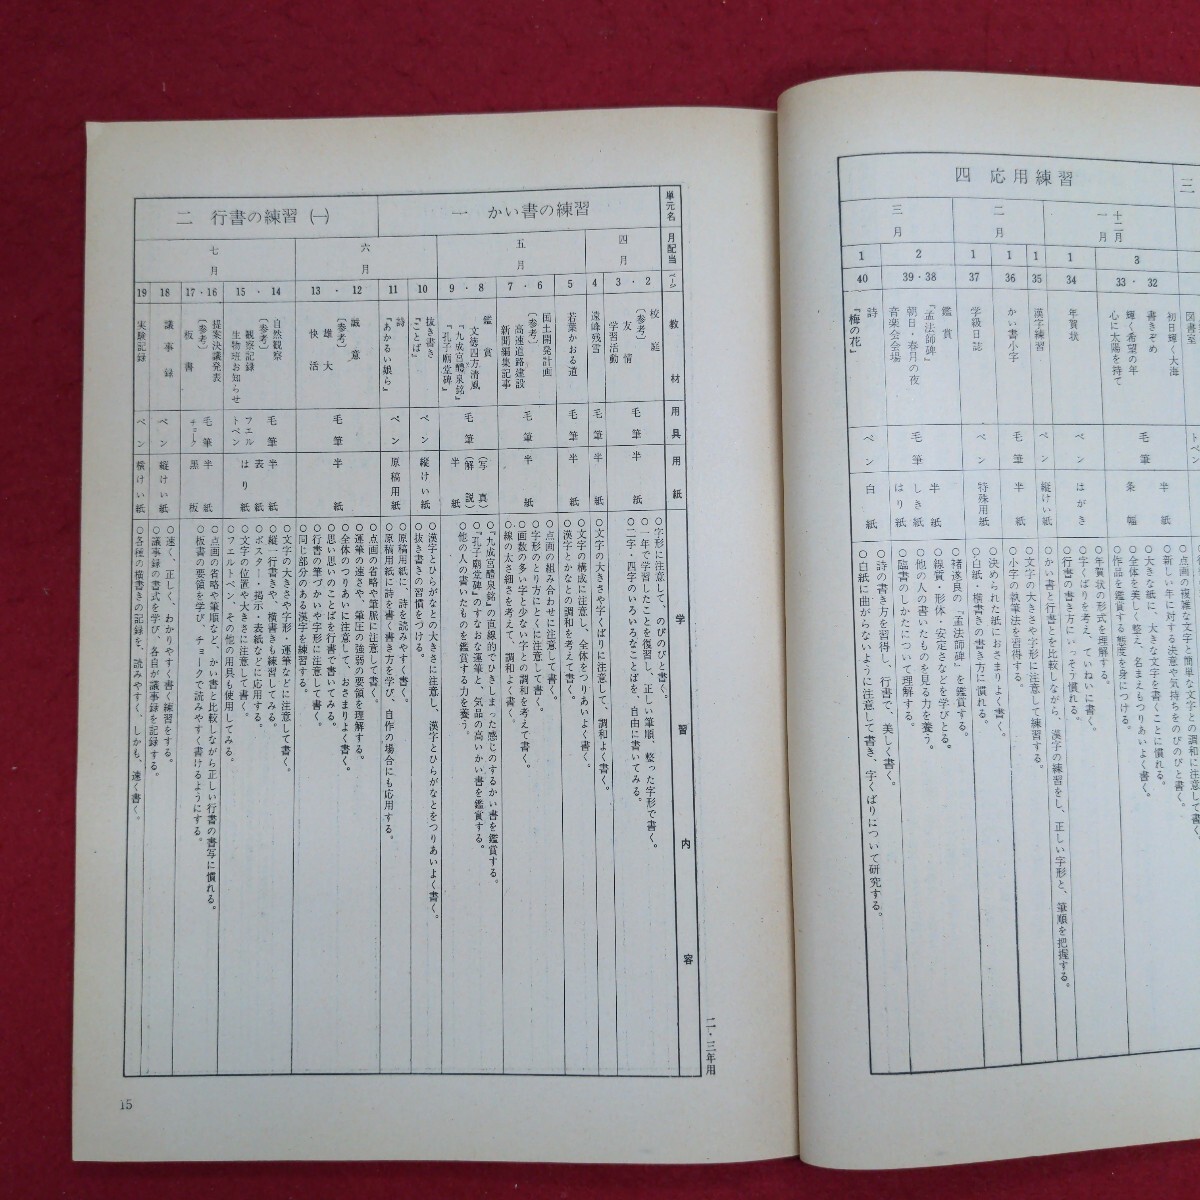 二・三年用
単元名
月配当
ページ
教材
用具
用紙
学習内容
一 かい書の練習
四月
2・3
校庭
友情
〔参考〕
学習活動
毛筆
半紙
○字形に注意して、のびのびと書く。
○一年で学習したことを復習し、正しい筆順、整った字形で書く。
○二字・四字のいろいろなことばを、自由に書いてみる。
4
遠峰残雪
毛筆
半紙
○文字の大きさや字くばりに注意して、調和よく書く。
五月
5
若葉かおる道
毛筆
半紙
○文字の構成に注意し、全体をつりあいよく書く。
○漢字とかなとの調和を考えて書く。
6・7
国土開発計画
〔参考〕
高速道路建設
新聞編集記事
毛筆
半紙
○点画の組み合わせに注意して書く。
○字形のとり方にとくに注意して書く。
○画数の多い字と少ない字との調和を考えて書く。
○線の太さ細さを考えて、調和よく書く。
8・9
鑑賞
文徳四方清風
『九成宮醴泉銘』
『孔子廟堂碑』
毛筆
(写真)
(解説)
半紙
○『九成宮醴泉銘』の直線的でひきしまった感じのするかい書を鑑賞する。
○『孔子廟堂碑』のすなおな運筆と、気品の高いかい書を鑑賞する。
○他の人の書いたものを鑑賞する力を養う。
六月
10
抜き書き
『ことば』
ペン
縦けい紙
○漢字とひらがなとの大きさに注意し、漢字とひらがなとをつりあいよく書く。
○抜き書きの習慣をつける。
二 行書の練習 (一)
11
詩
『あかるい娘ら』
ペン
原稿用紙
○原稿用紙に、詩を読みやすく書く。
○原稿用紙に詩を書く書き方を学び、自作の場合にも応用する。
12・13
誠意
〔参考〕
雄大
快活
毛筆
半紙
○点画の省略や筆脈に注意して書く。
○運筆の速さや、筆圧の強弱の要領を理解する。
○全体のつりあいに注意して、おさまりよく書く。
○思い思いのことばを行書で書いてみる。
○行書の筆づかいや字形に注意して書く。
○同じ部分のある漢字を練習する。
七月
14・15
自然観察
〔参考〕
観察記録
生物班お知らせ
毛筆
フエルトペン
半紙
表紙
はり紙
○文字の大きさや字形・運筆などに注意して書く。
○縦一行書きや、横書きも練習してみる。
○ポスター・掲示・表紙などに応用する。
○文字の位置や大きさに注意して書く。
○フエルトペン、その他の用具も使用してみる。
16・17
提案決議発表
〔参考〕
板書
毛筆
チョーク
半紙
黒板
○点画の省略や筆順など、かい書と比較しながら正しい行書の書写に慣れる。
○板書の要領を学び、チョークで読みやすく書けるようにする。
18
議事録
ペン
縦けい紙
○速く、正しく、わかりやすく書く練習をする。
○議事録の書式を学び、各自が議事録を記録する。
19
実験記録
ペン
横けい紙
○各種の横書きの記録を、読みやすく、しかも、速く書く。
15
三
図書室
トペン
○点画の複雑な文字と簡単な文字との調和に注意して書く。
四 応用練習
十二月
一月
3
32・33
初日輝く大海
書きぞめ
輝く希望の年
心に太陽を持て
毛筆
半紙
条幅
○新しい年に対する決意や気持ちをのびのびと書く。
○大きな紙に、大きな文字を書くことに慣れる。
○全体を美しく整え、名まえもつりあいよく書く。
○作品を鑑賞する態度を身につける。
1
34
年賀状
ペン
はがき
○年賀状の形式を理解する。
○字くばりを考え、ていねいに書く。
○行書の書き方にいっそう慣れる。
二月
1
35
漢字練習
ペン
縦けい紙
○かい書と行書とを比較しながら、漢字の練習をし、正しい字形と、筆順を把握する。
1
36
かい書小字
毛筆
半紙
○文字の大きさや字形に注意して練習する。
○小字の執筆法を習得する。
1
37
学級日誌
ペン
特殊用紙
○決められた紙におさまりよく書く。
○白紙・横書きの書き方に慣れる。
三月
2
38・39
鑑賞
『孟法師碑』
朝日・春月の夜
音楽会会場
毛筆
半紙
しきし
はり紙
○褚遂良の『孟法師碑』を鑑賞する。
○線質・形体・安定さなどを学びとる。
○他の人の書いたものを見る力を養う。
○臨書のしかたについて理解する。
1
40
詩
『梅の花』
ペン
白紙
○詩の書き方を習得し、行書で、美しく書く。
○白紙に曲がらないように注意して書き、字くばりについて研究する。